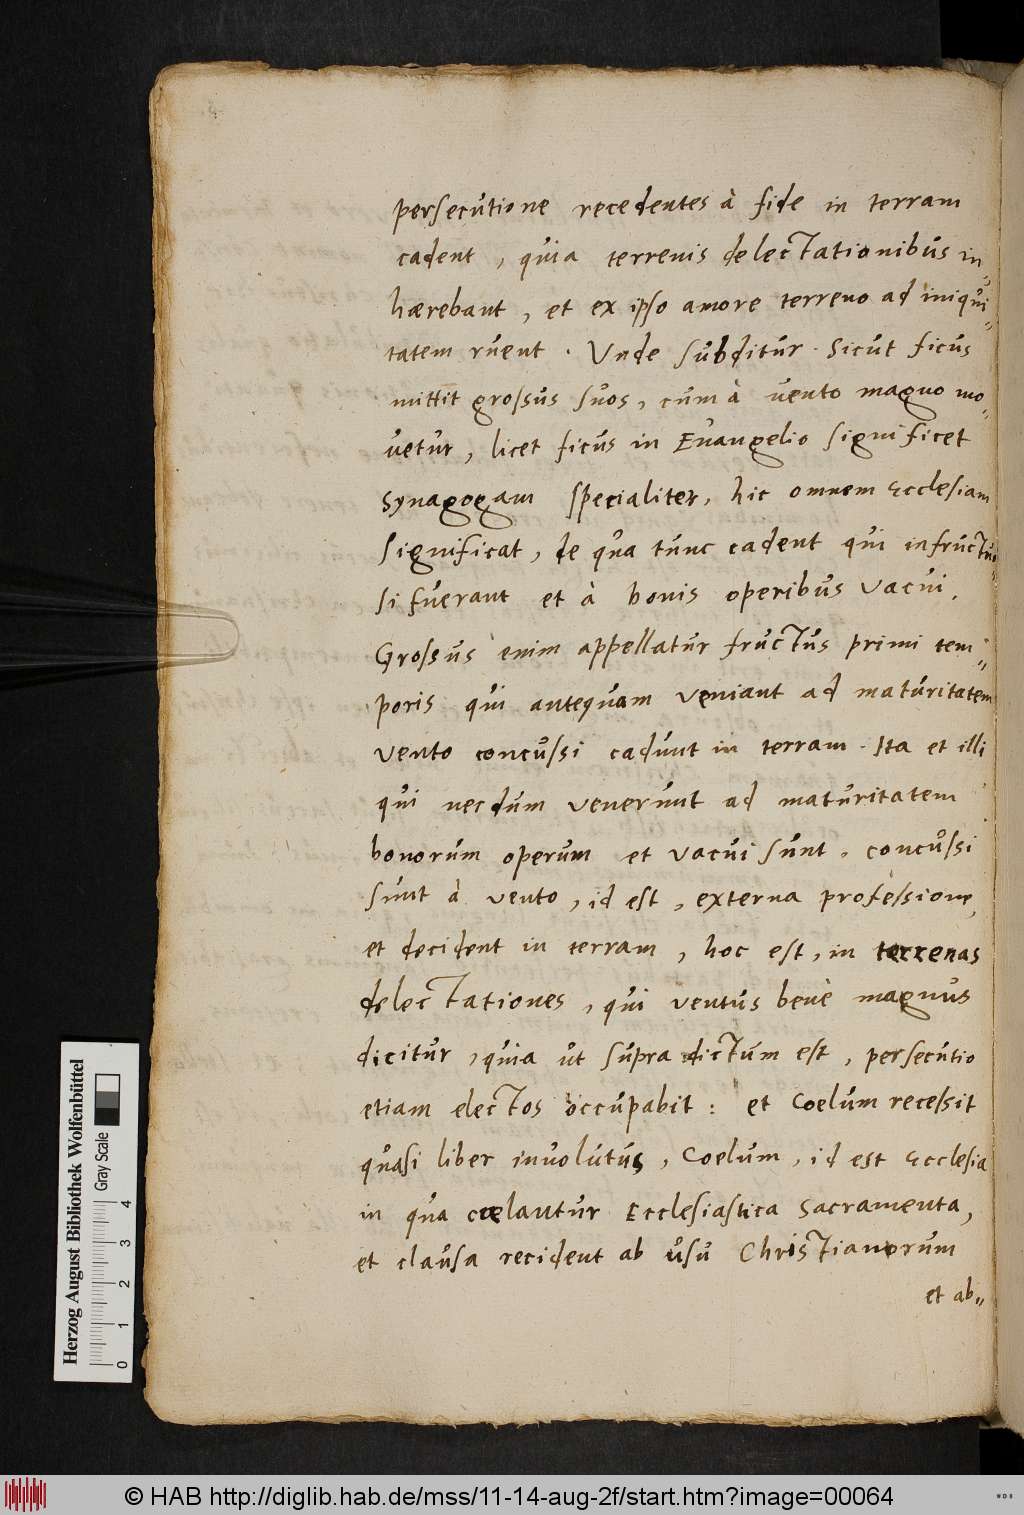 persecutione recedentes à fide in terram
cadent, quia terrenis delectationibus in„
hærebant, et ex ipso amore terreno ad iniqui„
tatem ruent. Unde subditur. Sicut ficus
mittit grossus suos, cum à vento magno mo„
vetur, licet ficus in Evangelio significet
Synagogam specialiter, hic omnem Ecclesiam
significat, de qua tunc cadent qui infructuo„
si fuerant et à bonis operibus vacui.
Grossus enim appellatur fructus primi tem„
poris qui antequam veniant ad maturitatem
vento concussi cadunt in terram. Ita et illi
qui necdum venerunt ad maturitatem
bonorum operum et vacui sunt, concussi
sunt à vento, id est, externa professione,
et decident in terram, hoc est, in terrenas
delectationes, qui ventus benè magnus
dicitur, quia ut supra dictum est, persecutio
etiam electos occupabit: et Coelum recessit
quasi liber involutus, Coelum, id est Ecclesia
in qua cælantur Ecclesiastica Sacramenta,
et clausa recident ab usu Christianorum
et ab„
Herzog August Bibliothek Wolfenbüttel
Gray Scale
0 1 2 3 4
© HAB http://diglib.hab.de/mss/11-14-aug-2f/start.htm?image=00064